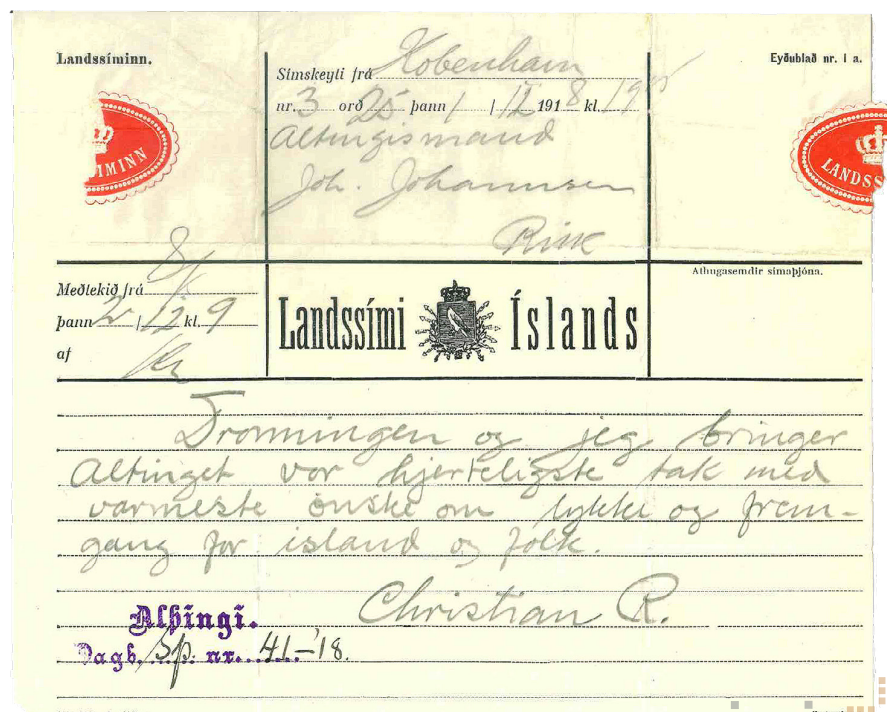 Landssíminn.
Símskeyti frá Kobenham
Eyðublað nr. 1 a.
nr. 3 orð 25 þann 1 / 12 1918 kl. 19
Altingismand
Joh. Johannsen
Rvik
MINN
LANDSS
Meðtekið frá
þann 2 / 12 kl. 9
af
Landssími Íslands
Athugasemdir símaþjóna.
Dronningen og jeg bringer
Altinget vor hjerteligste tak med
varmeste önske om lykke og frem-
gang for island og folk.
Christian R.
Alþingi.
Dagb. Sp. nr. 41-'18.